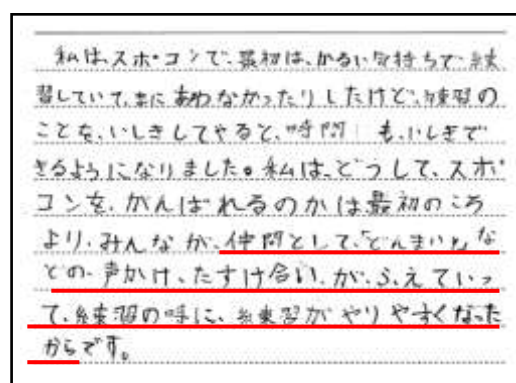 私は、スポ・コンで、最初は、かるい気持ちで練
習していて、まにあわなかったりしたけど、練習の
ことを、いしきしてやると、時間も、いしきで
きるようになりました。私は、どうして、スポ
コンを、がんばれるのかは最初のころ
より、みんなが、仲間として、「どんまい」な
どの、声かけ、たすけ合い、が、ふえていっ
て、練習の時に、練習がやりやすくなった
からです。